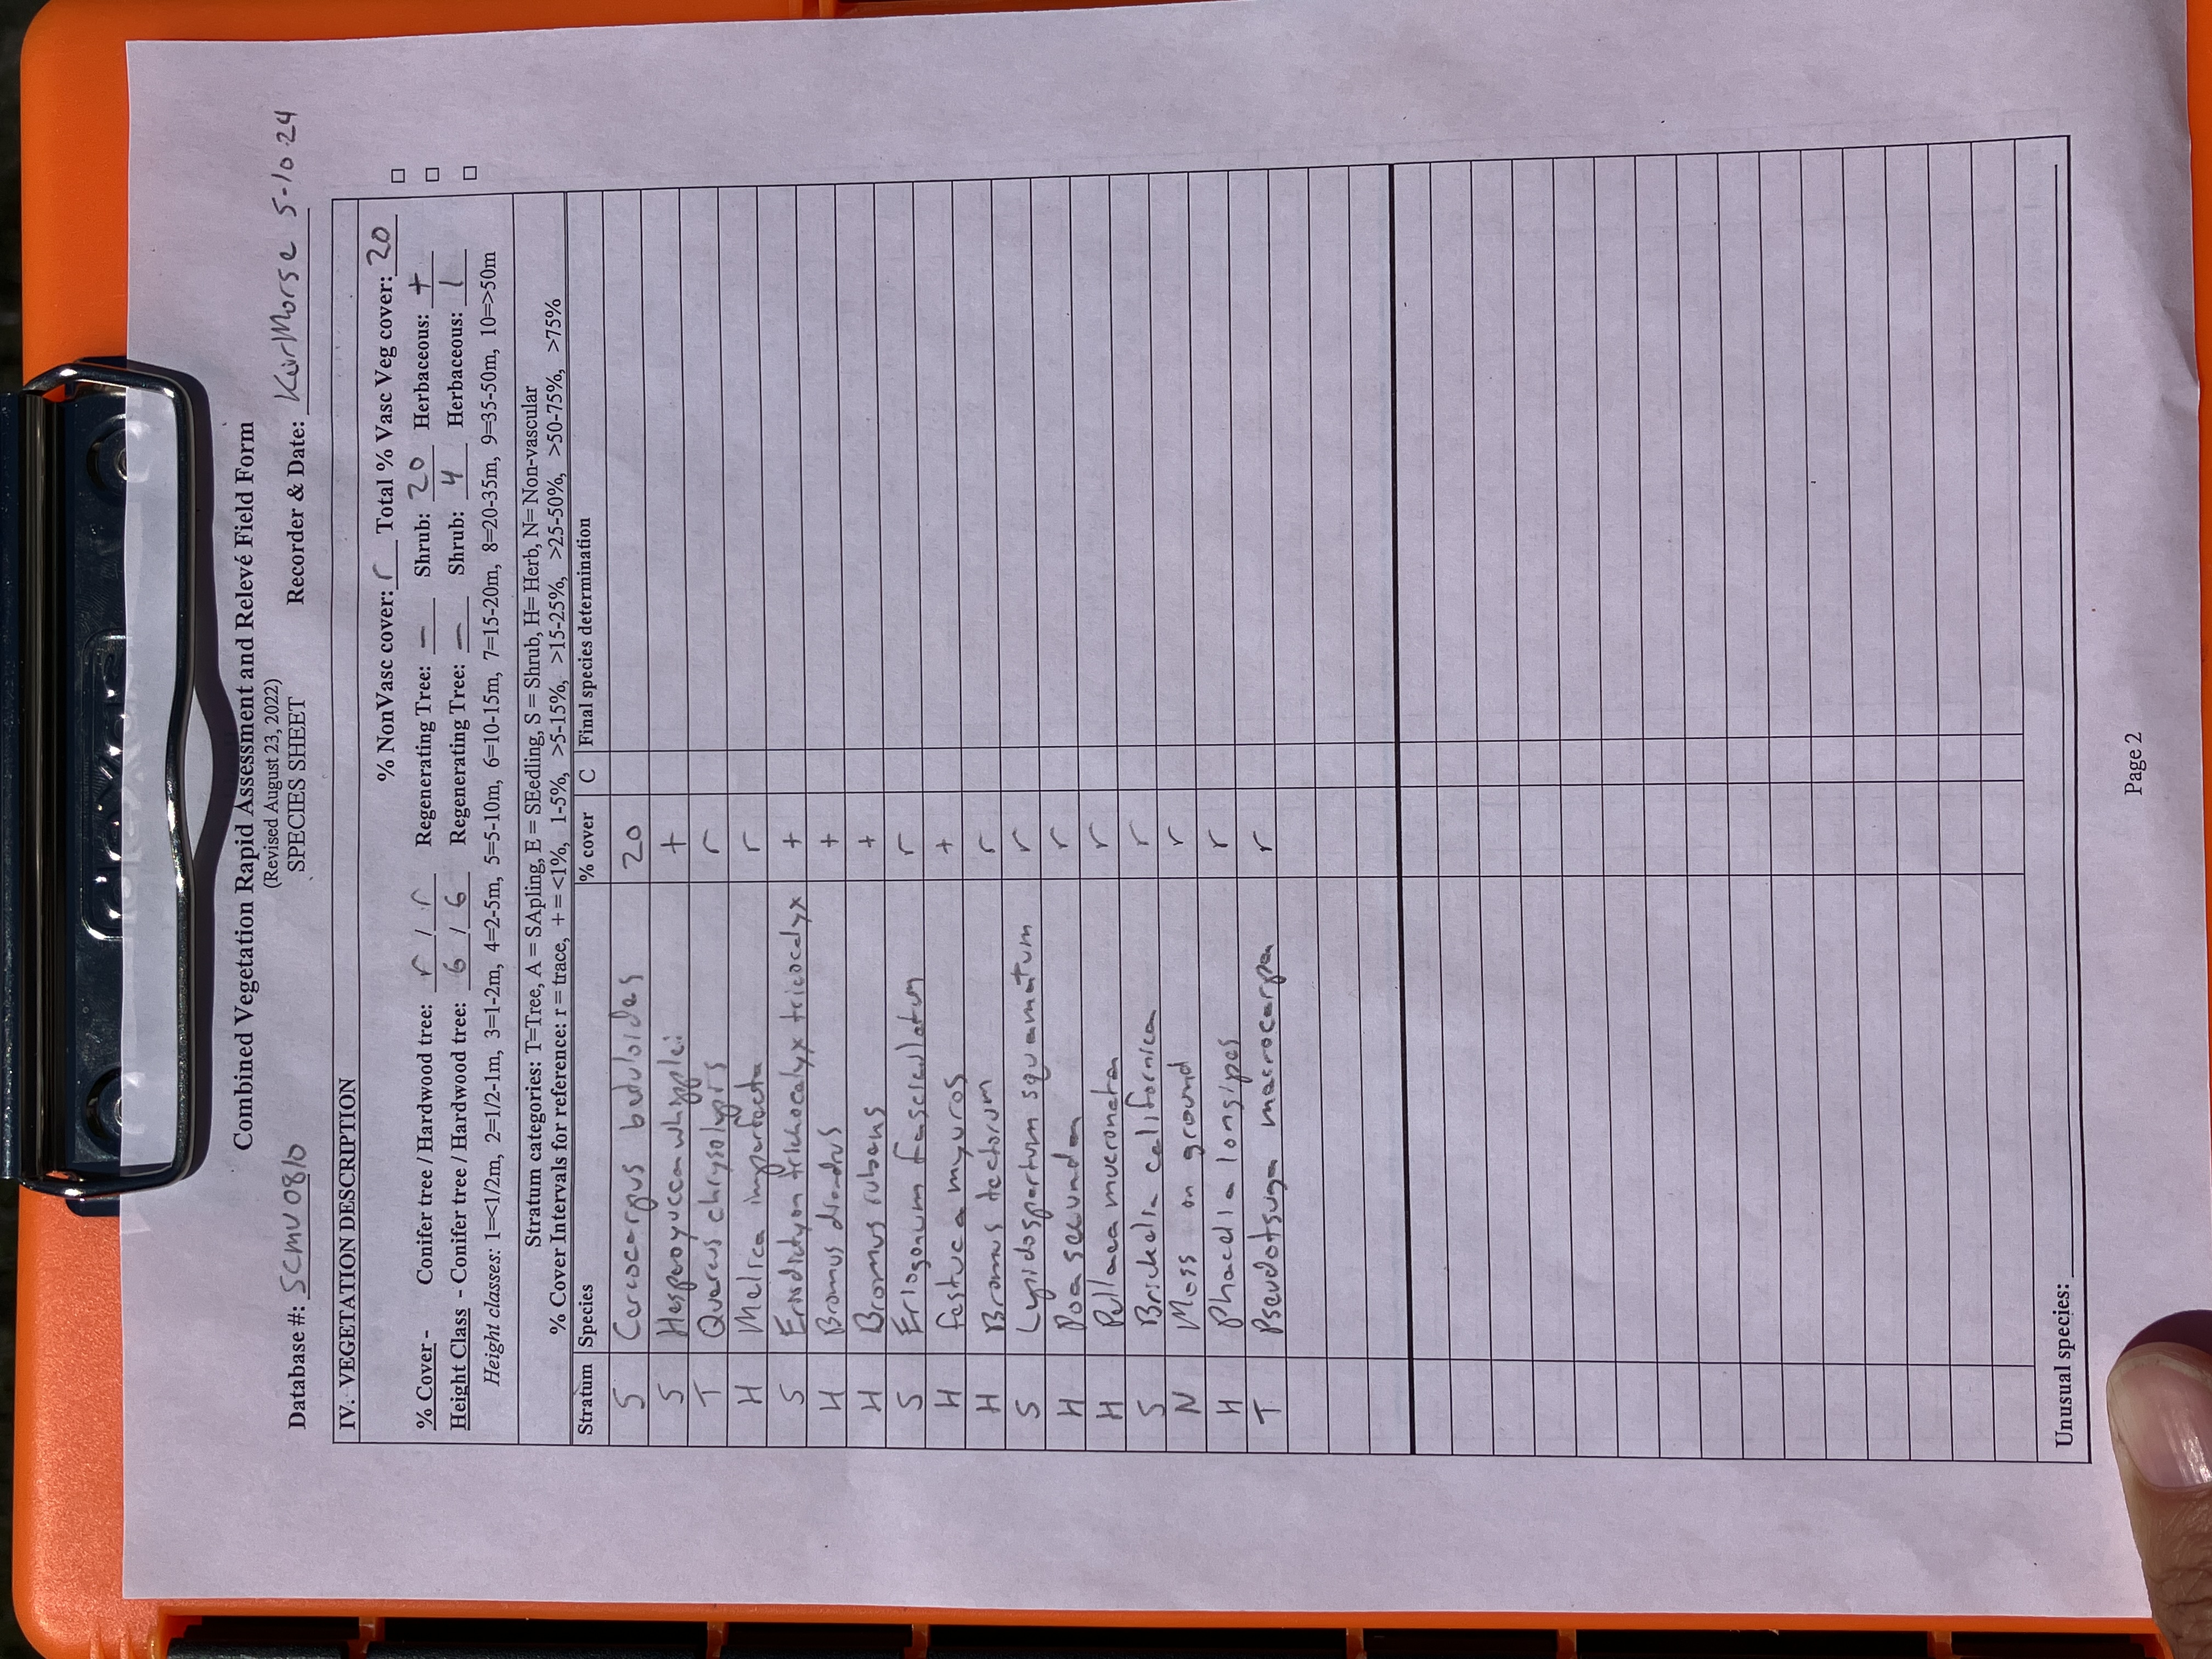 Combined Vegetation Rapid Assessment and Relevé Field Form
(Revised August 23, 2022)
SPECIES SHEET
Database #: SCMV0810 Recorder & Date: Kur Morse 5-10-24
IV. VEGETATION DESCRIPTION
% NonVasc cover: r Total % Vasc Veg cover: 20 □
% Cover - Conifer tree / Hardwood tree: r / r Regenerating Tree: — Shrub: 20 Herbaceous: + □
Height Class - Conifer tree / Hardwood tree: 6 / 6 Regenerating Tree: — Shrub: 4 Herbaceous: 1 □
Height classes: 1=<1/2m, 2=1/2-1m, 3=1-2m, 4=2-5m, 5=5-10m, 6=10-15m, 7=15-20m, 8=20-35m, 9=35-50m, 10=>50m
Stratum categories: T=Tree, A = SApling, E = SEedling, S = Shrub, H= Herb, N= Non-vascular
% Cover Intervals for reference: r = trace, + = <1%, 1-5%, >5-15%, >15-25%, >25-50%, >50-75%, >75%
Stratum Species % cover C Final species determination
S Cercocarpus betuloides 20
S Hesperoyucca whipplei +
T Quercus chrysolepis r
H Melica imperfecta r
S Eriodictyon trichocalyx tricocalyx +
H Bromus diandrus +
H Bromus rubens +
S Eriogonum fasciculatum r
H festuca myuros +
H Bromus tectorum r
S Lepidospartum squamatum r
H Poa secunda r
H Pellaea mucronata r
S Brickelia californica r
N Moss on ground r
H Phacelia longipes r
T Pseudotsuga macrocarpa r
Unusual species:
Page 2